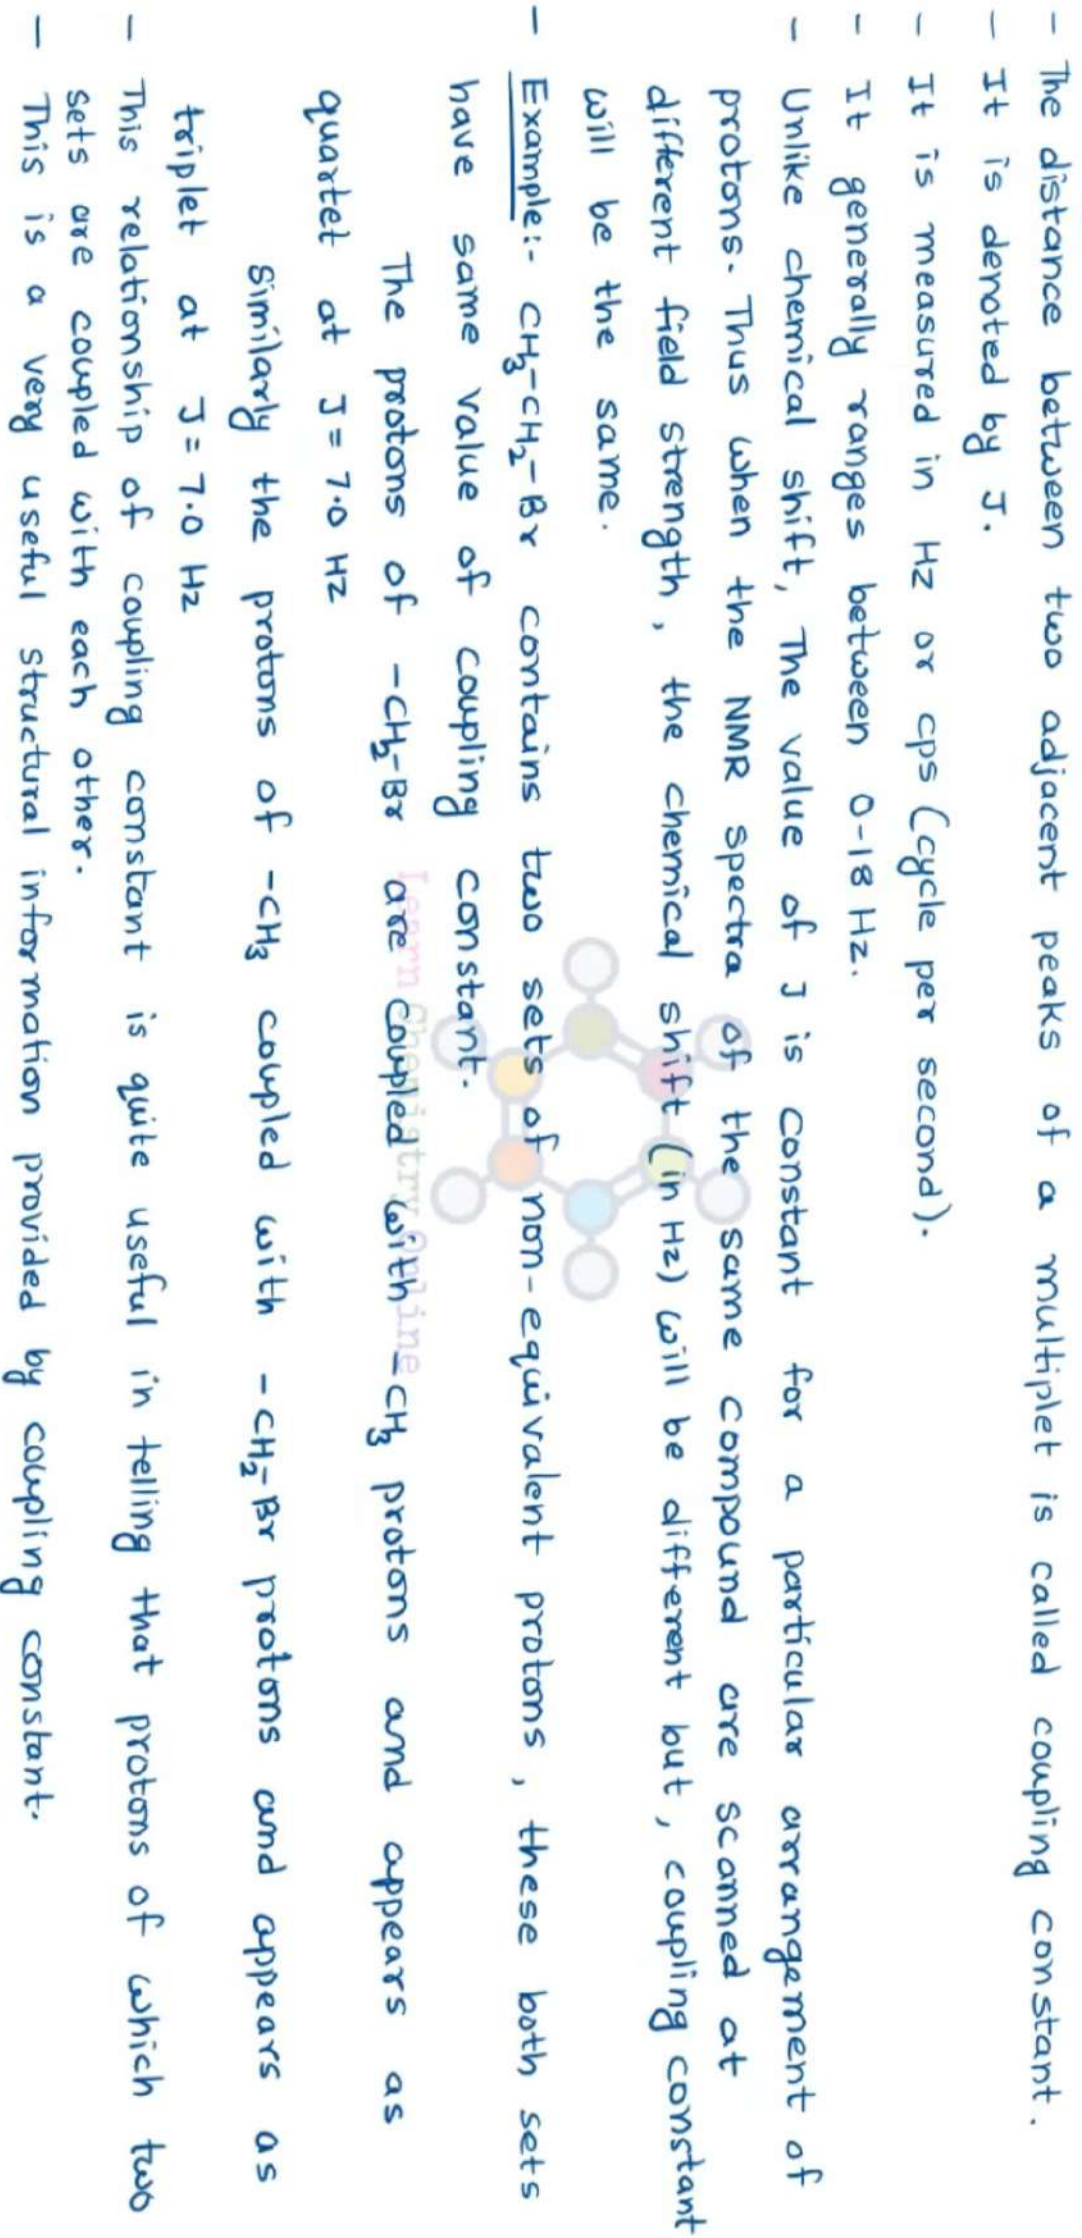 - The distance between two adjacent peaks of a multiplet is called coupling constant.
- It is denoted by J.
- It is measured in Hz or cps (cycle per second).
- It generally ranges between 0-18 Hz.
- Unlike chemical shift, The value of J is constant for a particular arrangement of
protons. Thus when the NMR spectra of the same compound are scanned at
different field strength, the chemical shift (in Hz) will be different but, coupling constant
will be the same.
- Example:- CH3-CH2-Br contains two sets of non-equivalent protons, these both sets
have same value of coupling constant.
The protons of -CH2-Br are coupled with -CH3 protons and appears as
quartet at J = 7.0 Hz
Similarly the protons of -CH3 coupled with -CH2-Br protons and appears as
triplet at J = 7.0 Hz
- This relationship of coupling constant is quite useful in telling that protons of which two
sets are coupled with each other.
- This is a very useful structural information provided by coupling constant.
Learn Chemistry Online